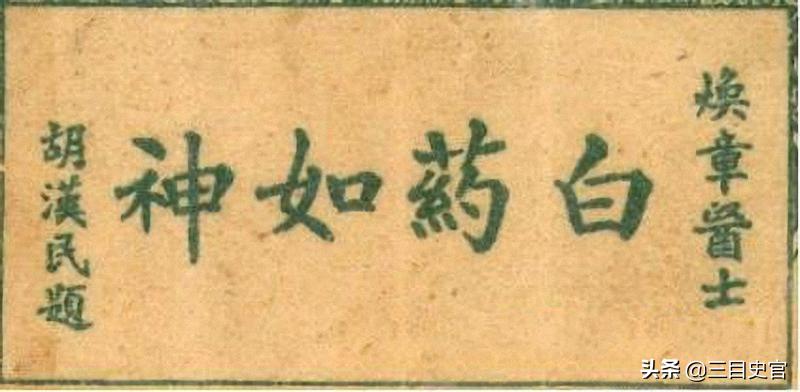 煥章醫士
白藥如神
胡漢民題
头条 @三目史官